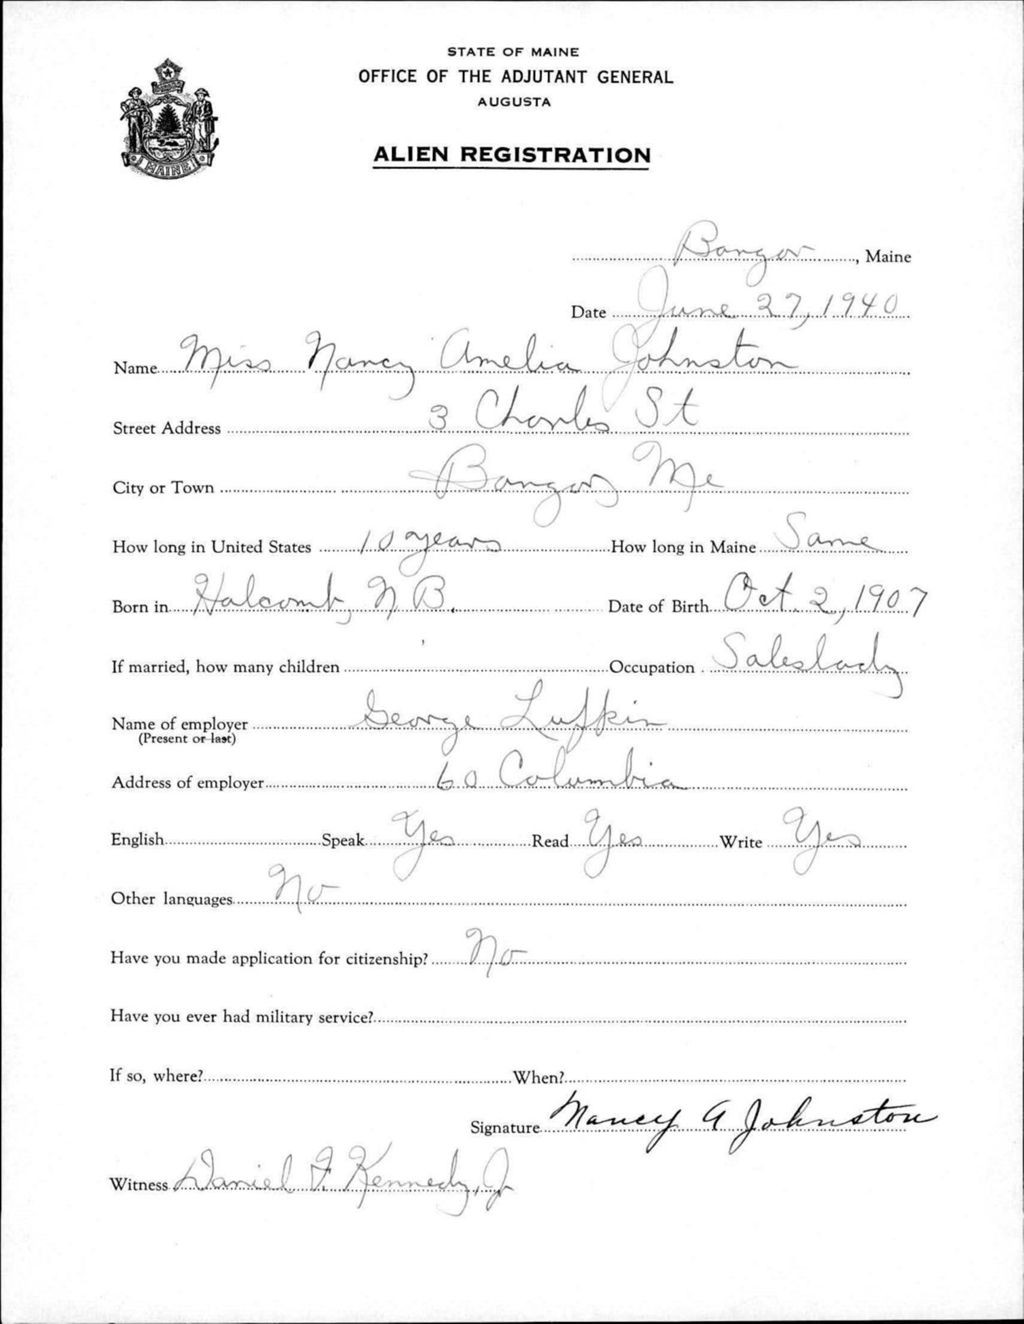 STATE OF MAINE
OFFICE OF THE ADJUTANT GENERAL
AUGUSTA
MAINE
ALIEN REGISTRATION
Bangor, Maine
Date June 27, 1940
Name Miss Nancy Amelia Johnston
Street Address 3 Charles St
City or Town Bangor, Me
How long in United States 10 years How long in Maine Same
Born in Halcomb, N B. Date of Birth Oct. 2, 1907
If married, how many children Occupation Saleslady
Name of employer George Lufkin
(Present or last)
Address of employer 60 Columbia
English Speak Yes Read Yes Write Yes
Other languages No
Have you made application for citizenship? No
Have you ever had military service?
If so, where? When?
Signature Nancy A Johnston
Witness Daniel F. Kennedy, Jr